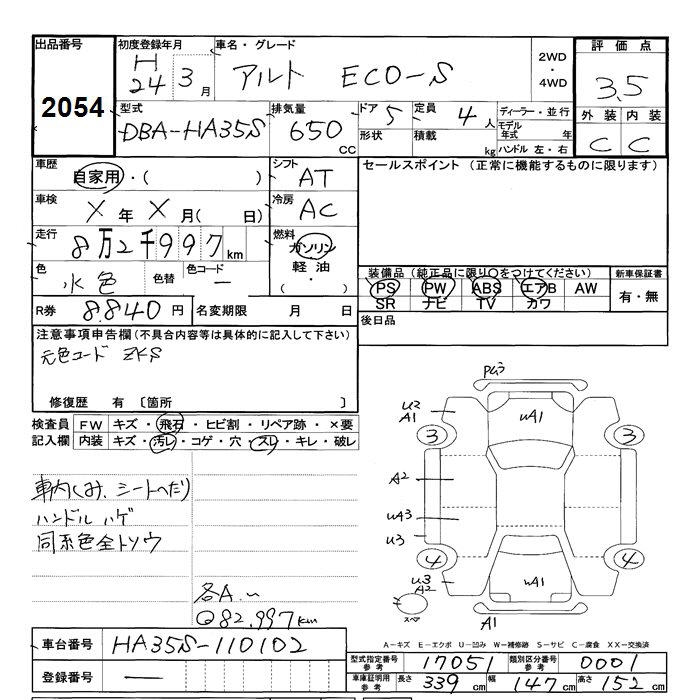 出品番号 初度登録年月 車名・グレード 評価点
2054 H24 3月 アルト ECO-S 2WD・4WD 3.5
型式 排気量 ドア 定員 ディーラー・並行 外装 内装
DBA-HA35S 650cc 5 4人 モデル年式 年 C C
形状 積載 kg ハンドル 左・右
車歴 自家用・( ) シフト AT セールスポイント (正常に機能するものに限ります)
車検 X年X月( 日) 冷房 AC
走行 8万2千997km 燃料 ガソリン
軽油
( ・ )
色 水色 色替 色コード ー 装備品(純正品に限り○をつけてください) 新車保証書
PS PW ABS エアB AW 有・無
SR ナビ TV カワ
R券 8.840円 名変期限 月 日 後日品
注意事項申告欄(不具合内容等は具体的に記入して下さい)
元色コード ZKS
修復歴 有 〔箇所 〕
検査員 FW キズ・飛石・ヒビ割・リペア跡・×要
記入欄 内装 キズ・汚レ・コゲ・穴・スレ・キレ・破レ
シートへたり
ハンドル ハゲ
同系色全トソウ
各A
82.997km
U2
A1
uA1
3
3
A2
uA3
u3
4
4
u3
A2
uA1
A1
スペア
A-キズ E-エクボ U-凹み W-補修跡 S-サビ C-腐食 XX-交換済
車台番号 HA35S-110102
登録番号 ー
型式指定番号 参考 17051 類別区分番号 参考 0001
車庫証明用 参考 長さ 339cm 幅 147cm 高さ 152cm